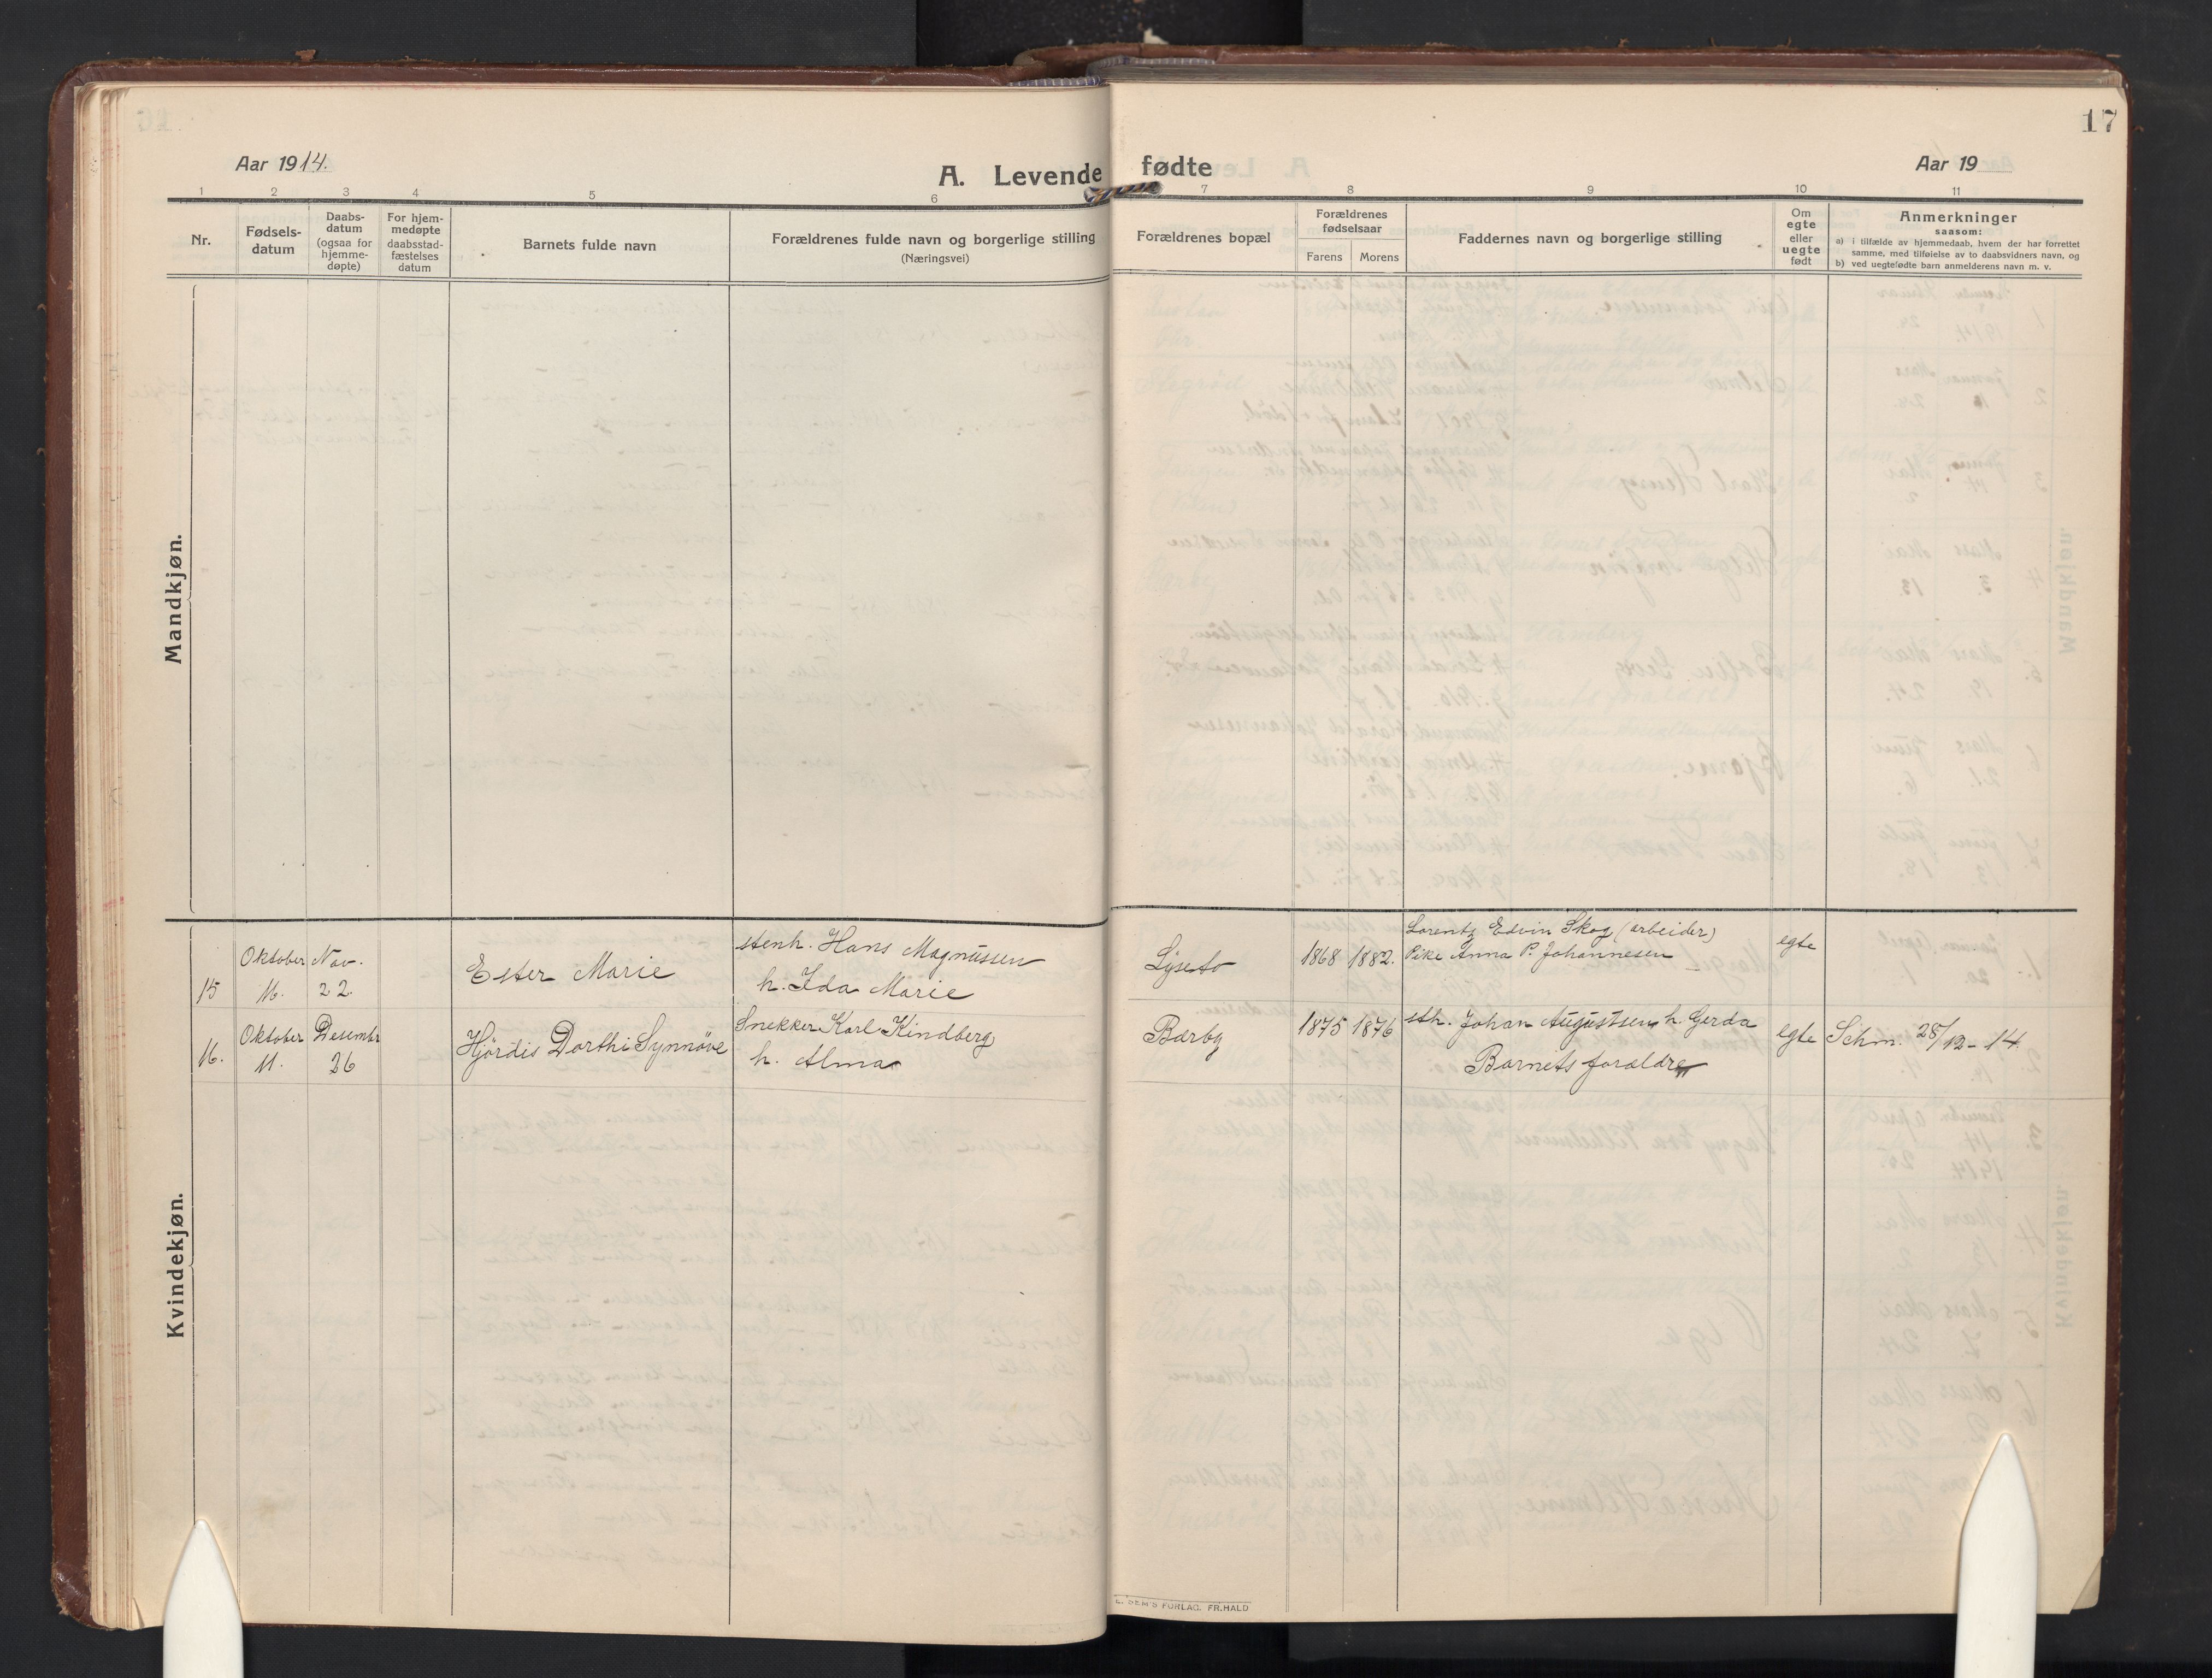 17
Aar 1914.
A. Levende fødte
Aar 19
1 2 3 4 5 6 7 8 9 10 11
Nr.
Fødsels-
datum
Daabs-
datum
(ogsaa for
hjemme-
døpte)
For hjem-
medøpte
daabsstad-
fæstelses
datum
Barnets fulde navn
Forældrenes fulde navn og borgerlige stilling
(Næringsvei)
Forældrenes bopæl
Forældrenes
fødselsaar
Farens Morens
Faddernes navn og borgerlige stilling
Om
egte
eller
uegte
født
Anmerkninger
saasom:
a) i tilfælde av hjemmedaab, hvem der har forrettet
samme, med tilføielse av to daabsvidners navn, og
b) ved uegtefødte barn anmelderens navn m. v.
Mandkjøn.
Kvindekjøn.
15
Oktober
16.
Nov.
22.
Ester Marie
stenh. Hans Magnussen
h. Ida Marie
Lyseto
1868 1882.
Lorentz Edvin Skog (arbeider)
Pike Anna P. Johannesen
egte
16.
Oktober
11.
Desembr
26
Hjördis Dorthi Synnöve
Snekker Karl Kindberg
h. Alma
Bærby
1875 1876
sth. Johan Augustsen h. Gerda
Barnets forældre
egte
Schm. 28/12-14.
E. SEM'S FORLAG. FR.HALD